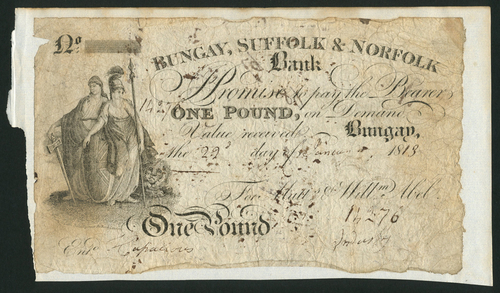 No
BUNGAY, SUFFOLK & NORFOLK
Bank
I Promise to pay the Bearer
ONE POUND, on Demand
Value received Bungay,
the 22d day of 1813
For Willm Abel
14276
One Pound
Entd